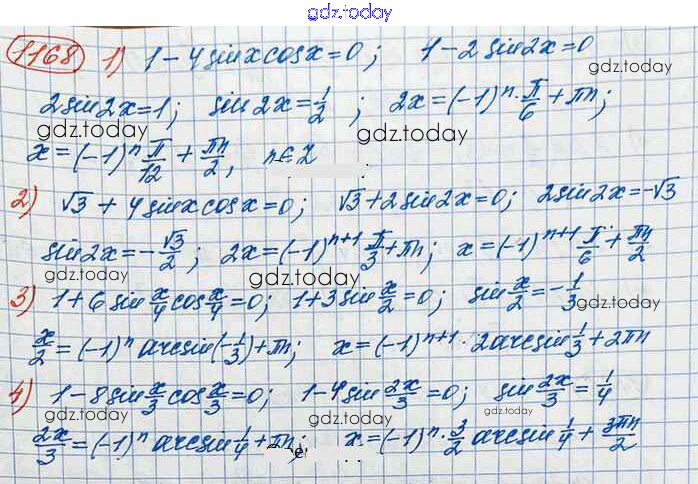 gdz.today
1168 1) 1-4sinxcosx=0; 1-2sin2x=0
gdz.today
2sin2x=1; sin2x=1/2; 2x=(-1)^n·π/6+πn;
gdz.today gdz.today
x=(-1)^n π/12+πn/2, n∈Z
2) √3+4sinxcosx=0; √3+2sin2x=0; 2sin2x=-√3
sin2x=-√3/2; 2x=(-1)^(n+1) π/3+πn; x=(-1)^(n+1) π/6+πn/2
gdz.today gdz.today
3) 1+6sin x/4 cos x/4=0; 1+3sin x/2=0; sin x/2=-1/3
gdz.today
x/2=(-1)^n arcsin(-1/3)+πn; x=(-1)^(n+1)·2arcsin 1/3+2πn
4) 1-8sin x/3 cos x/3=0; 1-4sin 2x/3=0; sin 2x/3=1/4
gdz.today gdz.today
2x/3=(-1)^n arcsin 1/4+πn; x=(-1)^n·3/2 arcsin 1/4+3πn/2
gdz.today